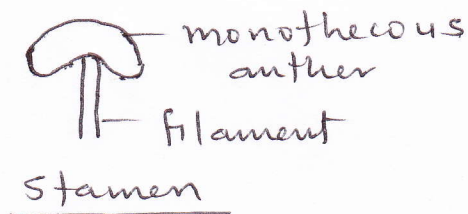 monothecous
anther
filament
Stamen